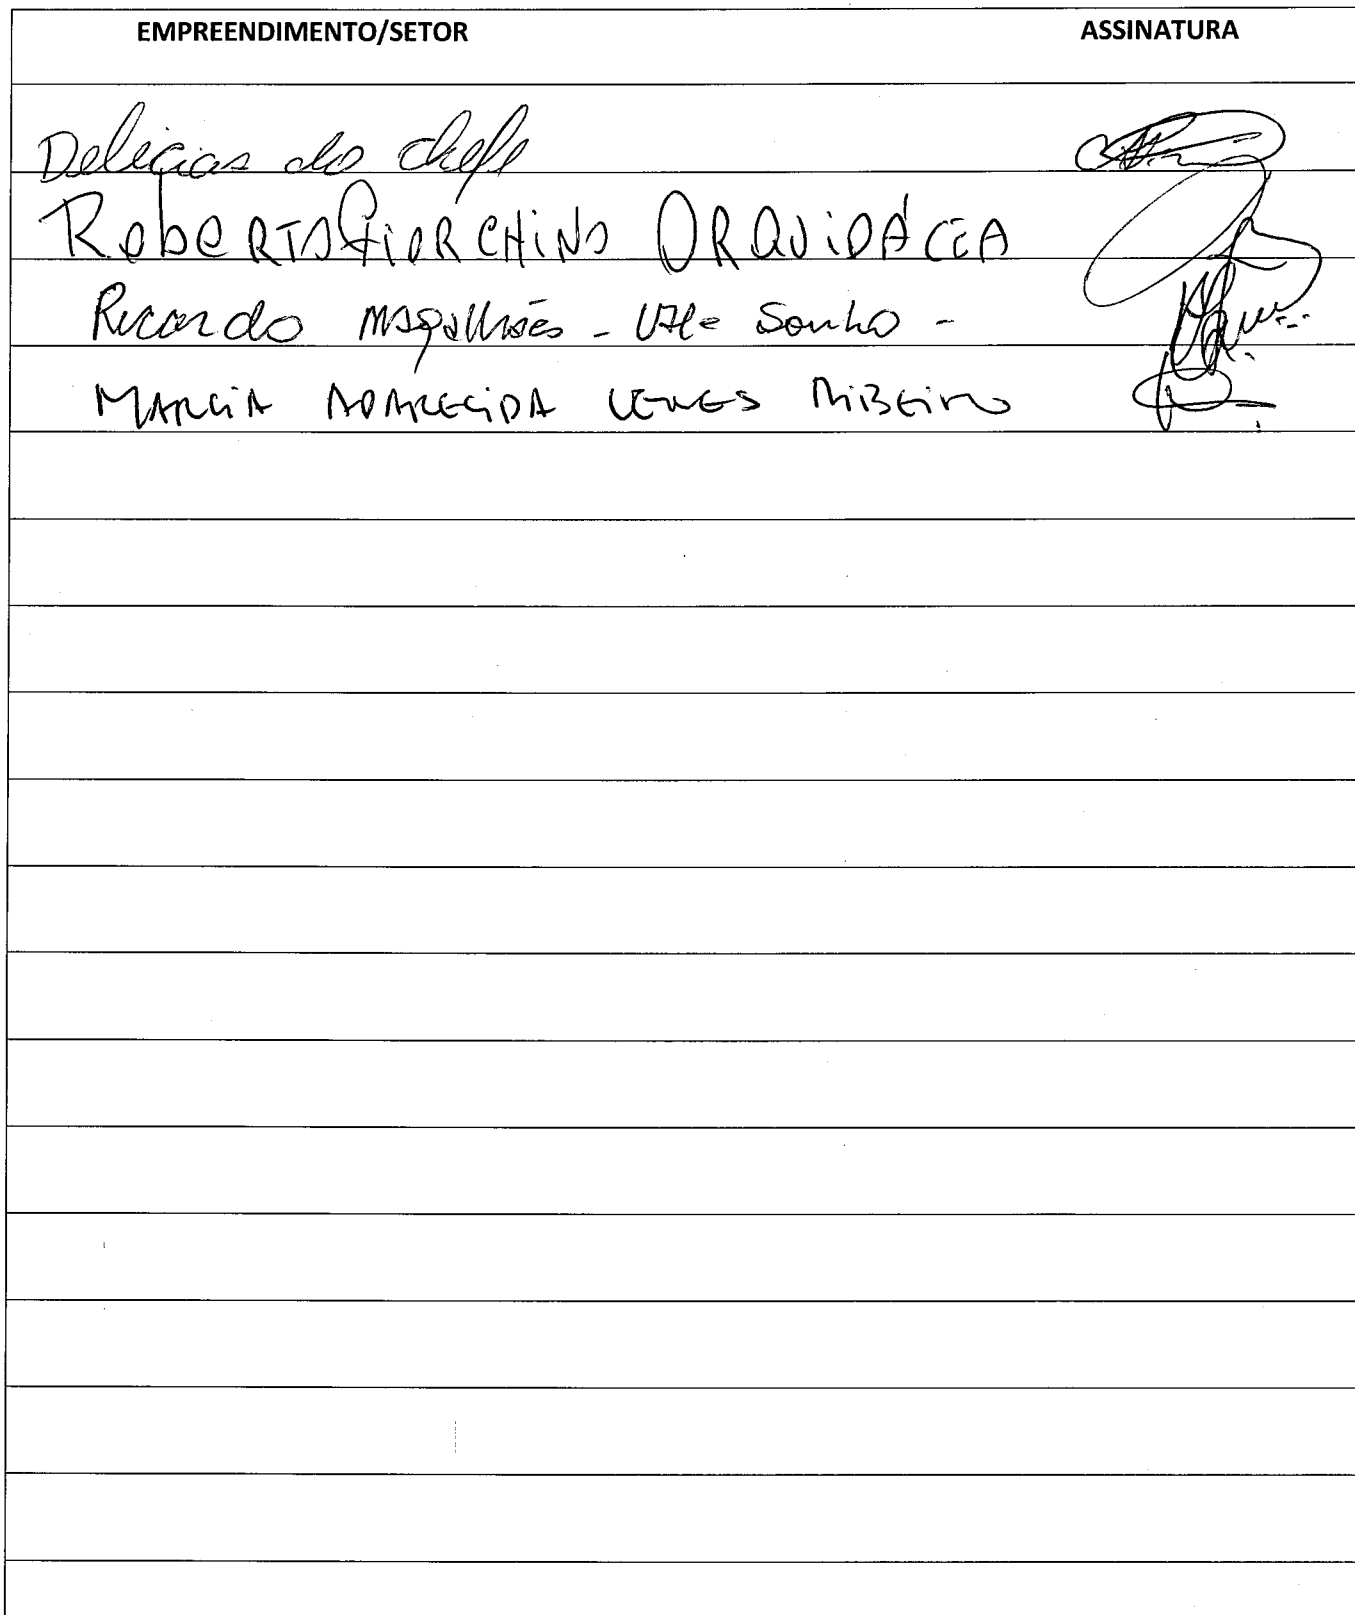 EMPREENDIMENTO/SETOR ASSINATURA
Delicias do chefe
Roberto Fiorchino ORQUIDÁCEA
Ricardo Magalhães - Vale Sonho -
MARCIA APARECIDA RIBEIRO